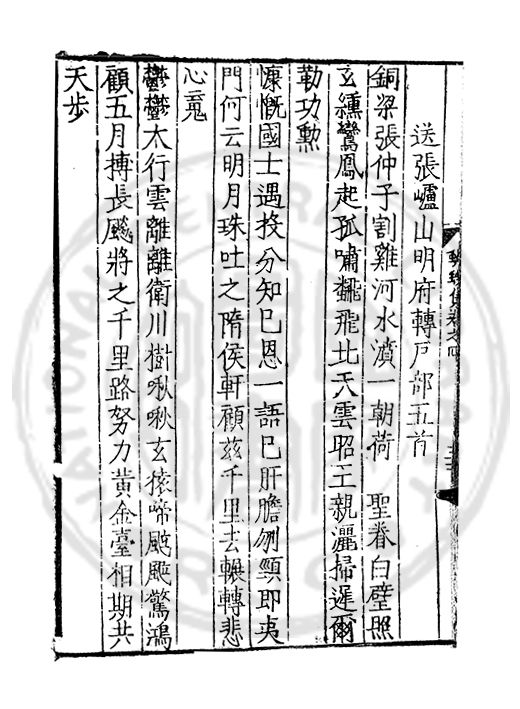 送張嶇山明府轉戶部五首
銅梁張仲子割雞河水濆一朝荷　聖眷白璧照
玄纁鸞鳳起孤嘯翻飛北天雲昭王親灑掃遲爾
勒功勲
慷慨國士遇投分知已恩一語已肝膽刎頸即夷
門何云明月珠吐之隋侯軒顧茲千里去輾轉悲
心䰟
鬱鬱太行雲離離衛川樹啾啾玄猿啼颸颸驚鴻
顧五月摶長飈將之千里路努力黃金臺相期共
天步